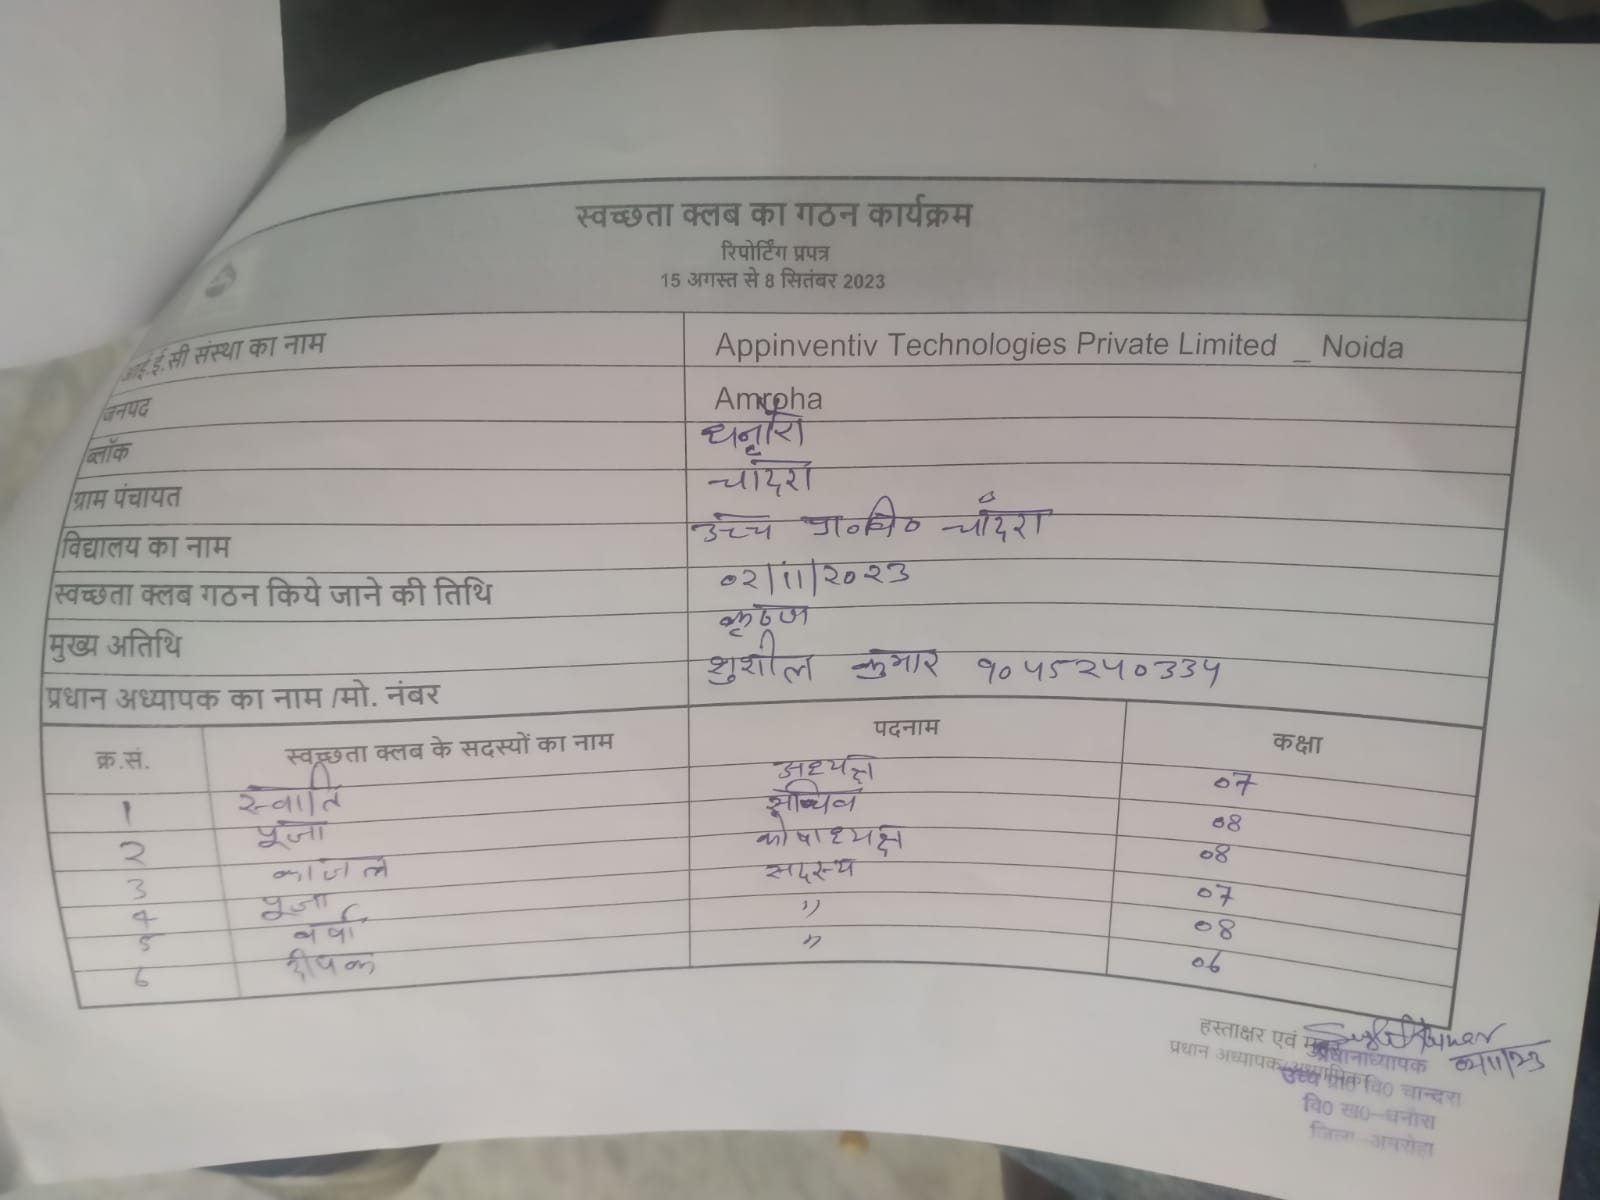 स्वच्छता क्लब का गठन कार्यक्रम
रिपोर्टिंग प्रपत्र
15 अगस्त से 8 सितंबर 2023
आई.ई.सी संस्था का नाम Appinventiv Technologies Private Limited _ Noida
जनपद Amroha
ब्लॉक
ग्राम पंचायत चांदरा
विद्यालय का नाम उच्च प्रा०वि० चांदरा
स्वच्छता क्लब गठन किये जाने की तिथि 02/11/2023
मुख्य अतिथि
प्रधान अध्यापक का नाम /मो. नंबर शुशील कुमार
क्र.सं. स्वच्छता क्लब के सदस्यों का नाम पदनाम कक्षा
1 स्वाति अध्यक्ष 07
2 पूजा सचिव 08
3 काजल कोषाध्यक्ष 08
4 पूजा सदस्य 07
5 वर्षा " 08
6 दीपक " 06
हस्ताक्षर एवं
प्रधान अध्यापक
02/11/23
प्रधानाध्यापक
उच्च प्रा0 वि0 चान्दरा
वि0 ख0-धनौरा
जिला-अमरोहा